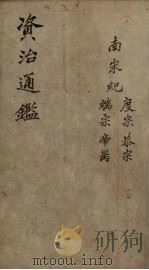 資治通鑑
南宋紀
度宗 恭宗
端宗 帝昺
www.modinfo.com